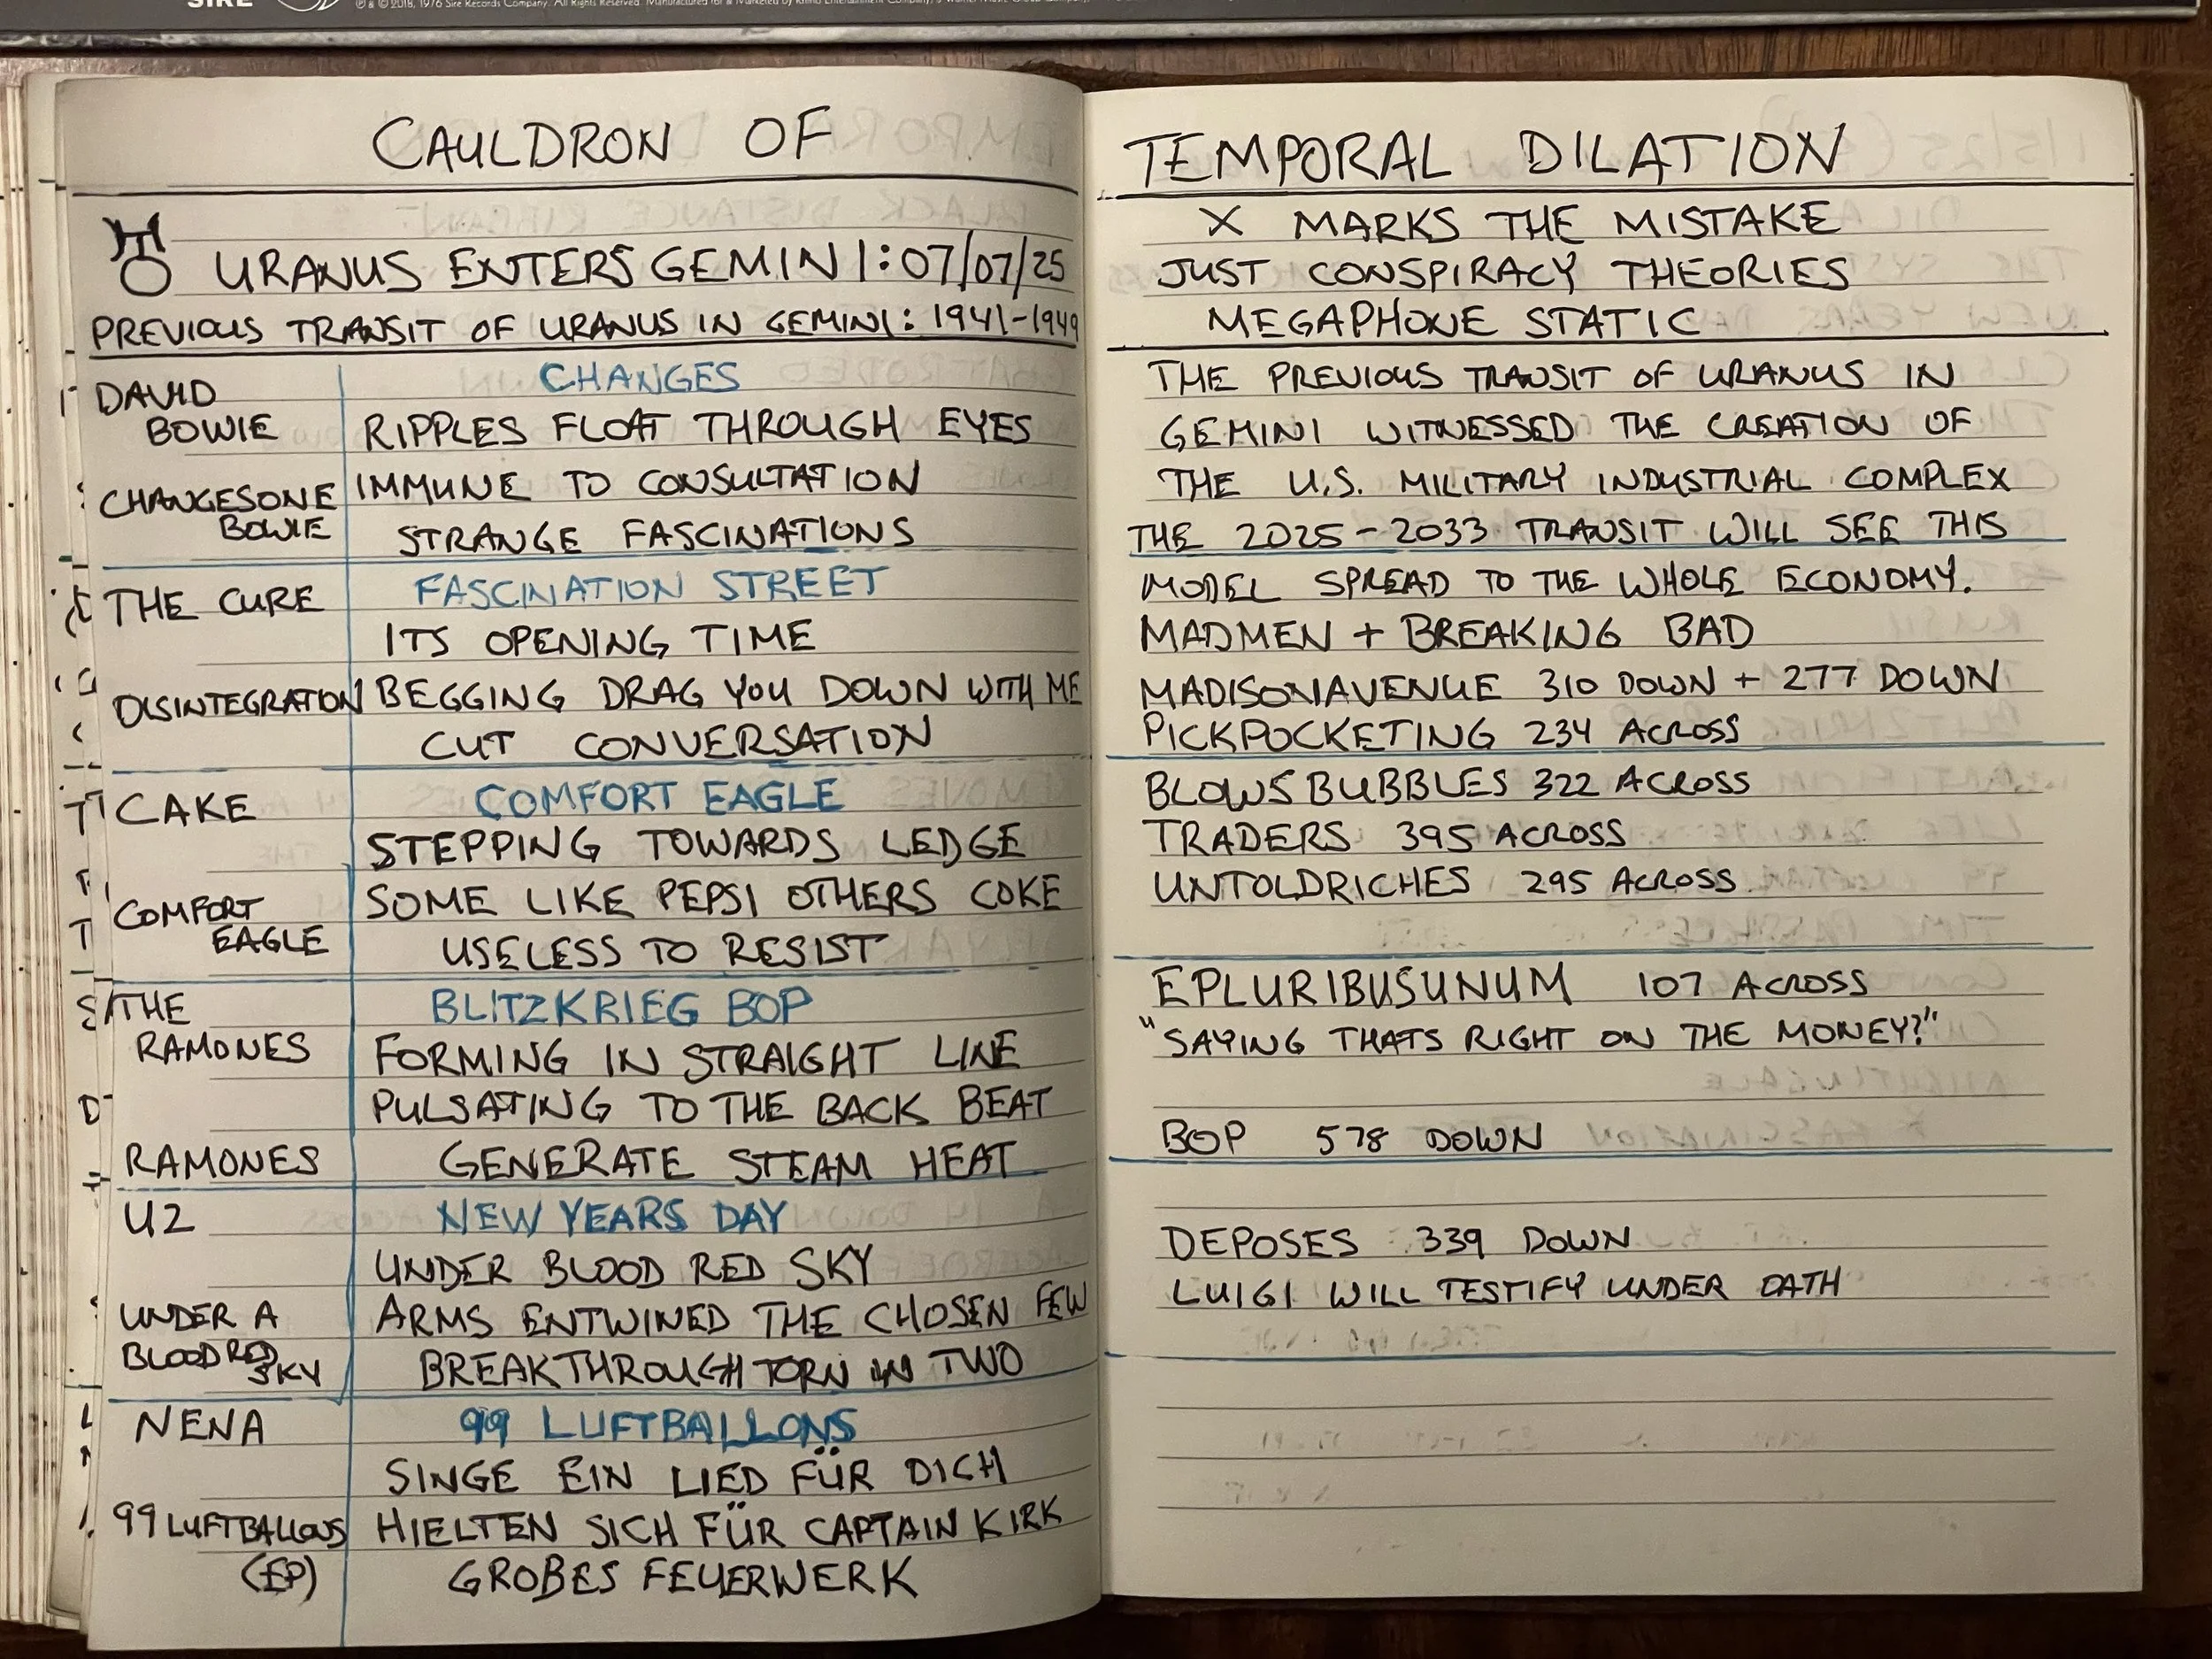 SIRE
℗ & © 2018, 1976 Sire Records Company. All Rights Reserved. Manufactured for & Marketed by Rhino Entertainment Company,
CAULDRON OF
URANUS ENTERS GEMINI: 07/07/25
PREVIOUS TRANSIT OF URANUS IN GEMINI: 1941-1949
DAVID
BOWIE
CHANGESONE
BOWIE
CHANGES
RIPPLES FLOAT THROUGH EYES
IMMUNE TO CONSULTATION
STRANGE FASCINATIONS
THE CURE
DISINTEGRATION
FASCINATION STREET
ITS OPENING TIME
BEGGING DRAG YOU DOWN WITH ME
CUT CONVERSATION
CAKE
COMFORT
EAGLE
COMFORT EAGLE
STEPPING TOWARDS LEDGE
SOME LIKE PEPSI OTHERS COKE
USELESS TO RESIST
THE
RAMONES
RAMONES
BLITZKRIEG BOP
FORMING IN STRAIGHT LINE
PULSATING TO THE BACK BEAT
GENERATE STEAM HEAT
U2
UNDER A
BLOOD RED
SKY
NEW YEARS DAY
UNDER BLOOD RED SKY
ARMS ENTWINED THE CHOSEN FEW
BREAKTHROUGH TORN IN TWO
NENA
99 LUFTBALLONS
(EP)
99 LUFTBALLONS
SINGE EIN LIED FÜR DICH
HIELTEN SICH FÜR CAPTAIN KIRK
GROBES FEUERWERK
TEMPORAL DILATION
X MARKS THE MISTAKE
JUST CONSPIRACY THEORIES
MEGAPHONE STATIC
THE PREVIOUS TRANSIT OF URANUS IN
GEMINI WITNESSED THE CREATION OF
THE U.S. MILITARY INDUSTRIAL COMPLEX
THE 2025-2033 TRANSIT WILL SEE THIS
MODEL SPREAD TO THE WHOLE ECONOMY.
MADMEN + BREAKING BAD
MADISONAVENUE 310 DOWN + 277 DOWN
PICKPOCKETING 234 ACROSS
BLOWSBUBBLES 322 ACROSS
TRADERS 395 ACROSS
UNTOLDRICHES 295 ACROSS
EPLURIBUSUNUM 107 ACROSS
"SAYING THATS RIGHT ON THE MONEY?"
BOP 578 DOWN
DEPOSES 339 DOWN
LUIGI WILL TESTIFY UNDER OATH